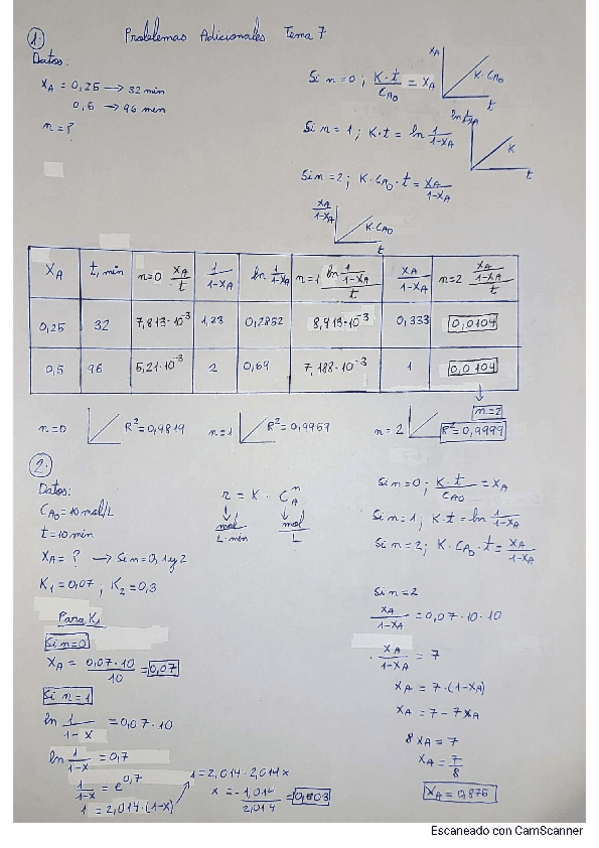 1. Problemas Adicionales Tema 7
Datos:
XA = 0,25 → 32 min
0,5 → 96 min
n = ?
Si n = 0 ; K·t/CA0 = XA
XA
K·CA0
t
Si n = 1 ; K·t = ln 1/1-XA
ln 1/1-XA
K
t
Si n = 2 ; K·CA0·t = XA/1-XA
XA/1-XA
K·CA0
t
XA | t, min | n=0 XA/t | 1/1-XA | ln 1/1-XA | n=1 ln 1/1-XA / t | XA/1-XA | n=2 XA/1-XA / t
0,25 | 32 | 7,813·10-3 | 1,33 | 0,2852 | 8,913·10-3 | 0,333 | 0,0104
0,5 | 96 | 5,21·10-3 | 2 | 0,69 | 7,188·10-3 | 1 | 0,0104
n=2
n=0 R2=0,9819 n=1 R2=0,9967 n=2 R2=0,9999
2.
Datos:
CA0 = 10 mol/L
t = 10 min
XA = ? → Si n = 0, 1 y 2
K1 = 0,07 ; K2 = 0,3
r = K · CA^n
mol/L·min mol/L
Si n=0 ; K·t/CA0 = XA
Si n=1 ; K·t = ln 1/1-XA
Si n=2 ; K·CA0·t = XA/1-XA
Para K1
Si n=0
XA = 0,07·10/10 = 0,07
Si n=1
ln 1/1-X = 0,07·10
ln 1/1-X = 0,7
1/1-X = e^0,7
1 = 2,014·(1-X)
1 = 2,014 - 2,014x
X = -1,014/2,014 = 0,503
Si n=2
XA/1-XA = 0,07·10·10
XA/1-XA = 7
XA = 7·(1-XA)
XA = 7-7XA
8XA = 7
XA = 7/8
XA = 0,875
Escaneado con CamScanner